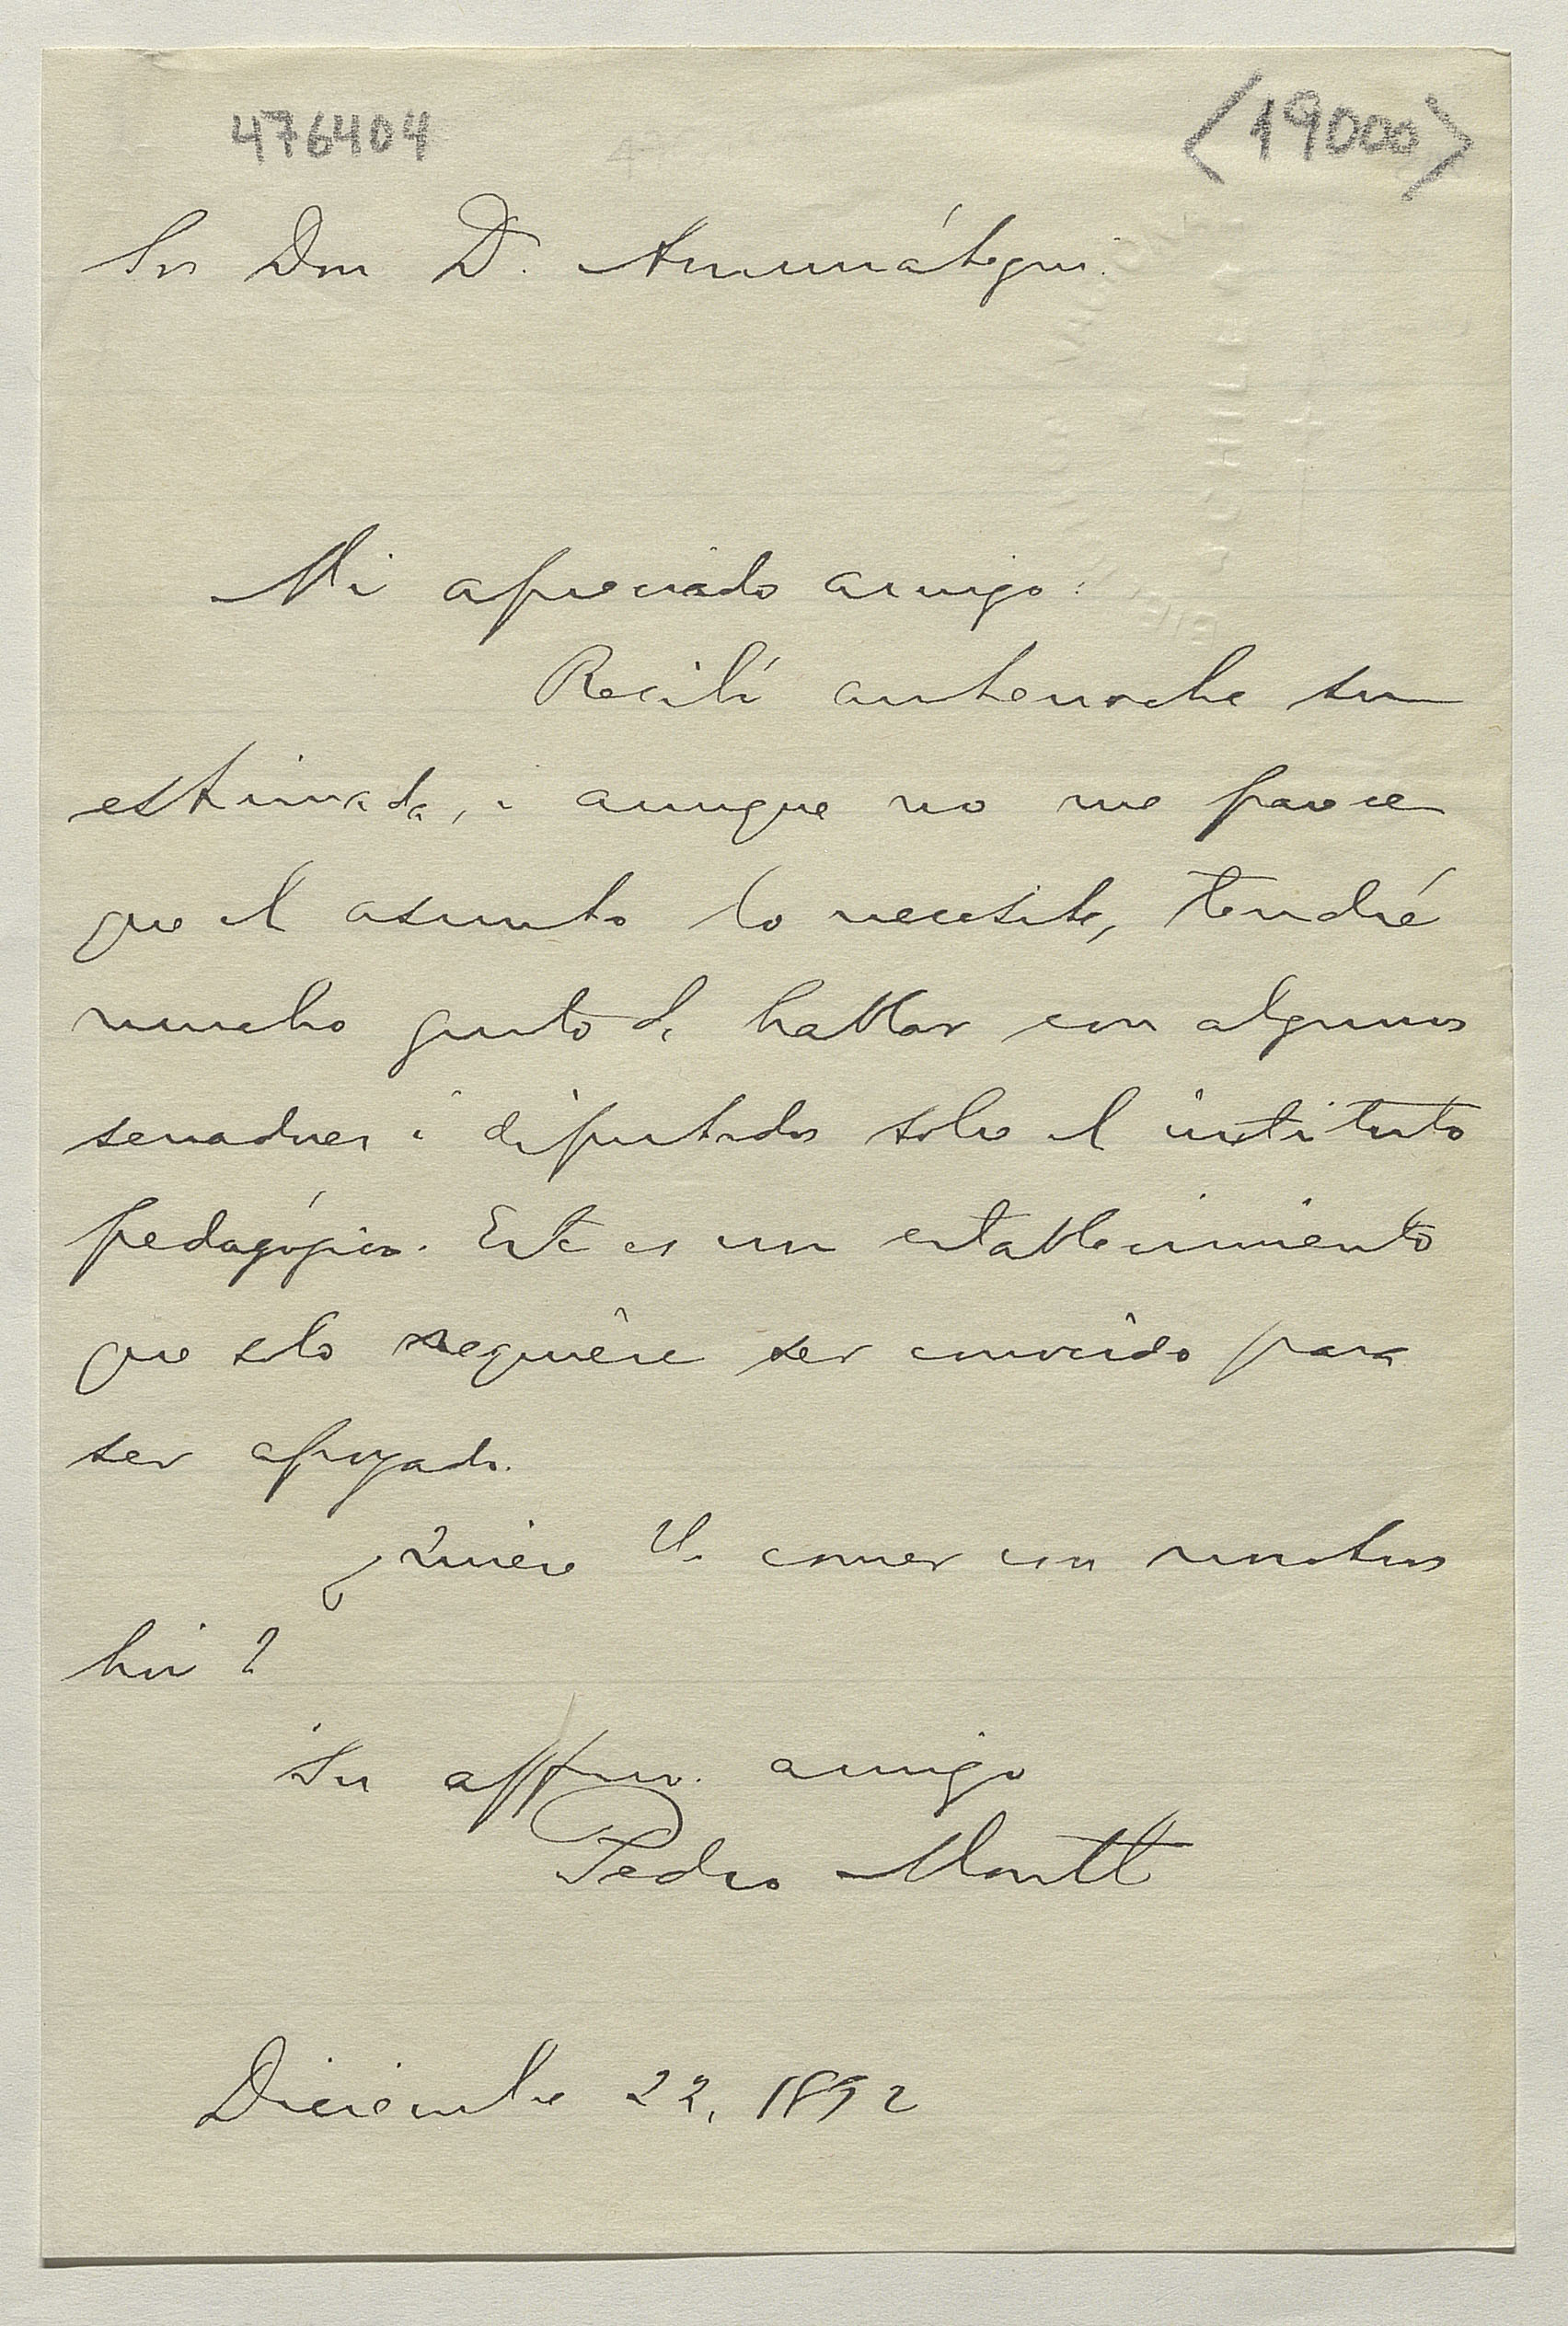 476404
<19000>
Sr Don D. Amunátegui.
Mi apreciado amigo:
Recibí antenoche su
estimada, i aunque no me parece
que el asunto lo necesite, tendré
mucho gusto de hablar con algunos
senadores i diputados sobre el instituto
pedagógico. Este es un establecimiento
que solo requiere ser conocido para
ser apoyado.
¿Quiere U. comer con nosotros
hoi?
Su affmo. amigo
Pedro Montt
Diciembre 22, 1892